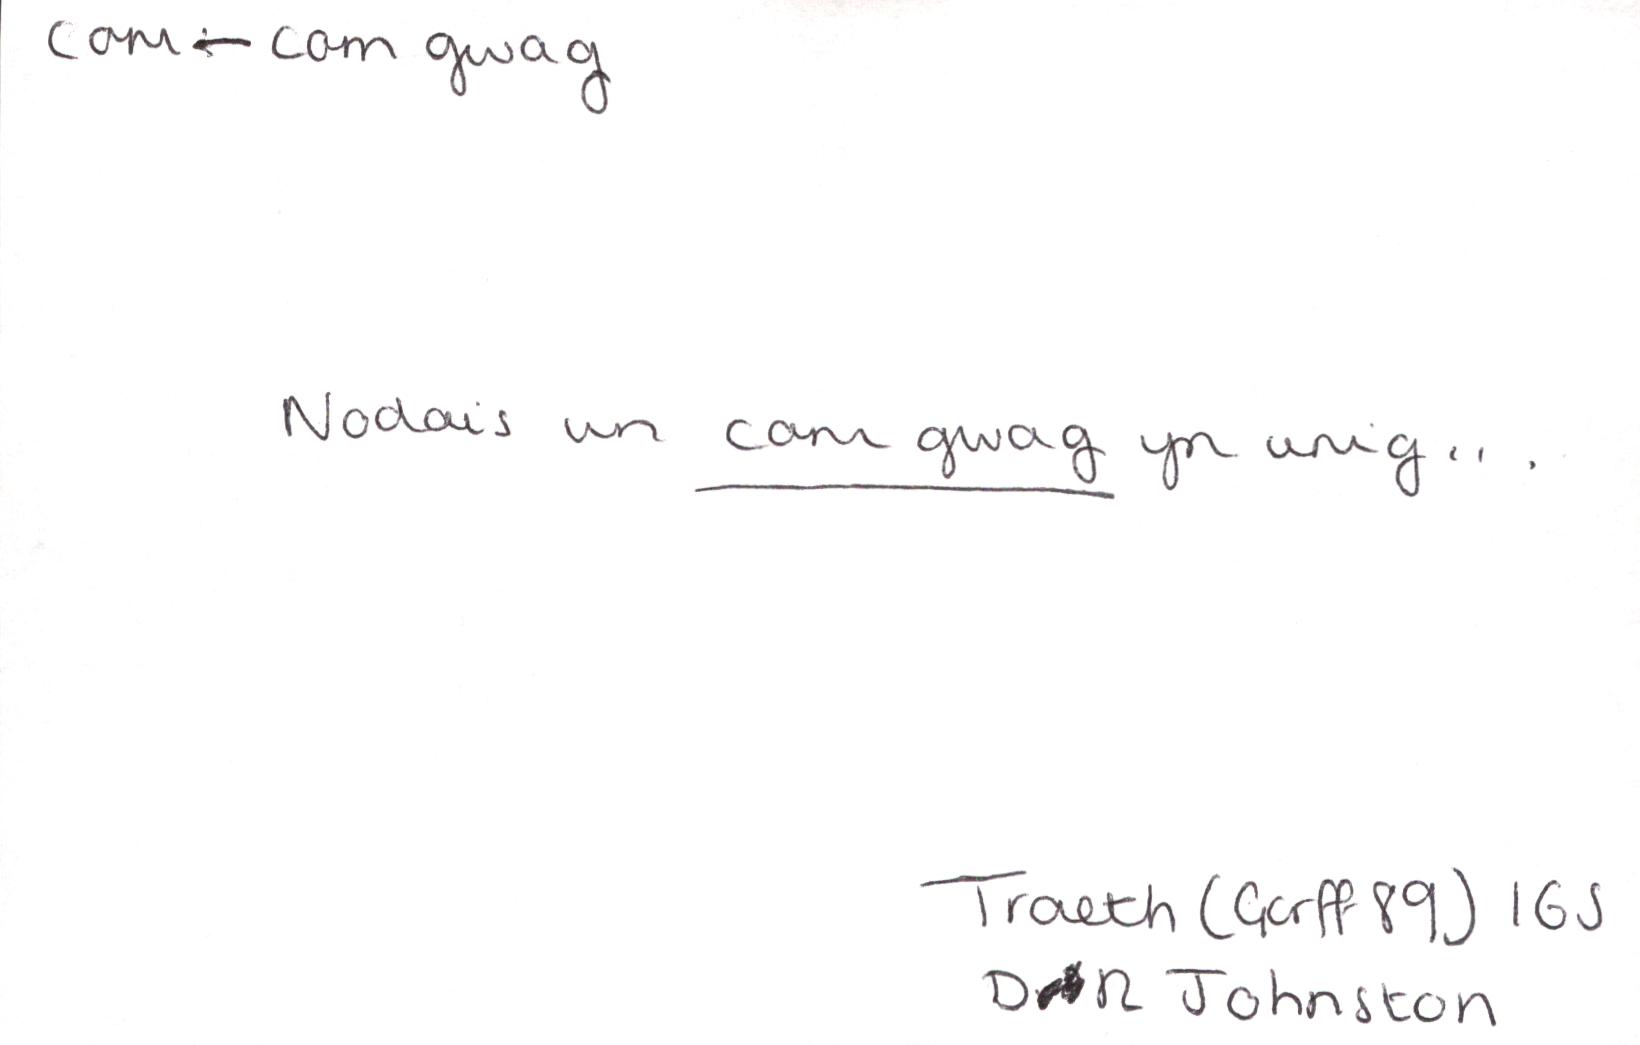 cam – cam gwag
Nodais un cam gwag yn unig...
Traeth (Gorff 89) 165
D R Johnston